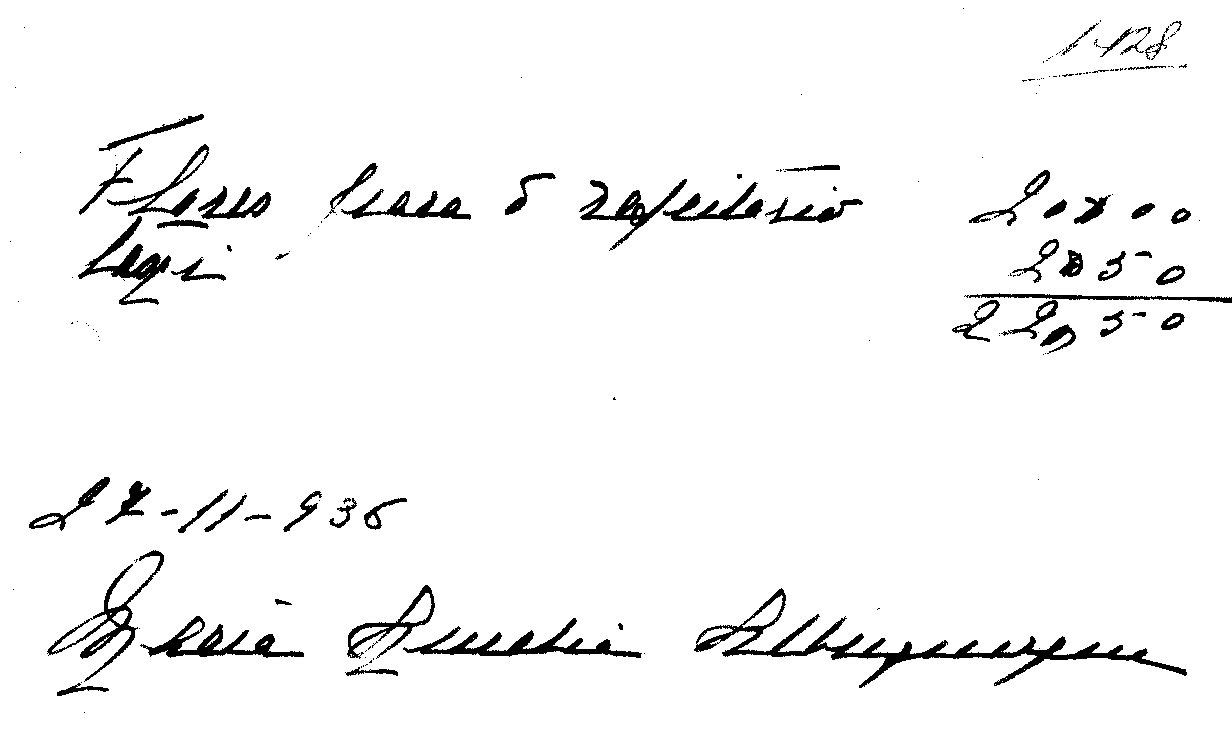 1428
Flores para o refeitorio 20,00
Lapis 2,50
22,50
27-11-936
Maria Amelia Albuquerque